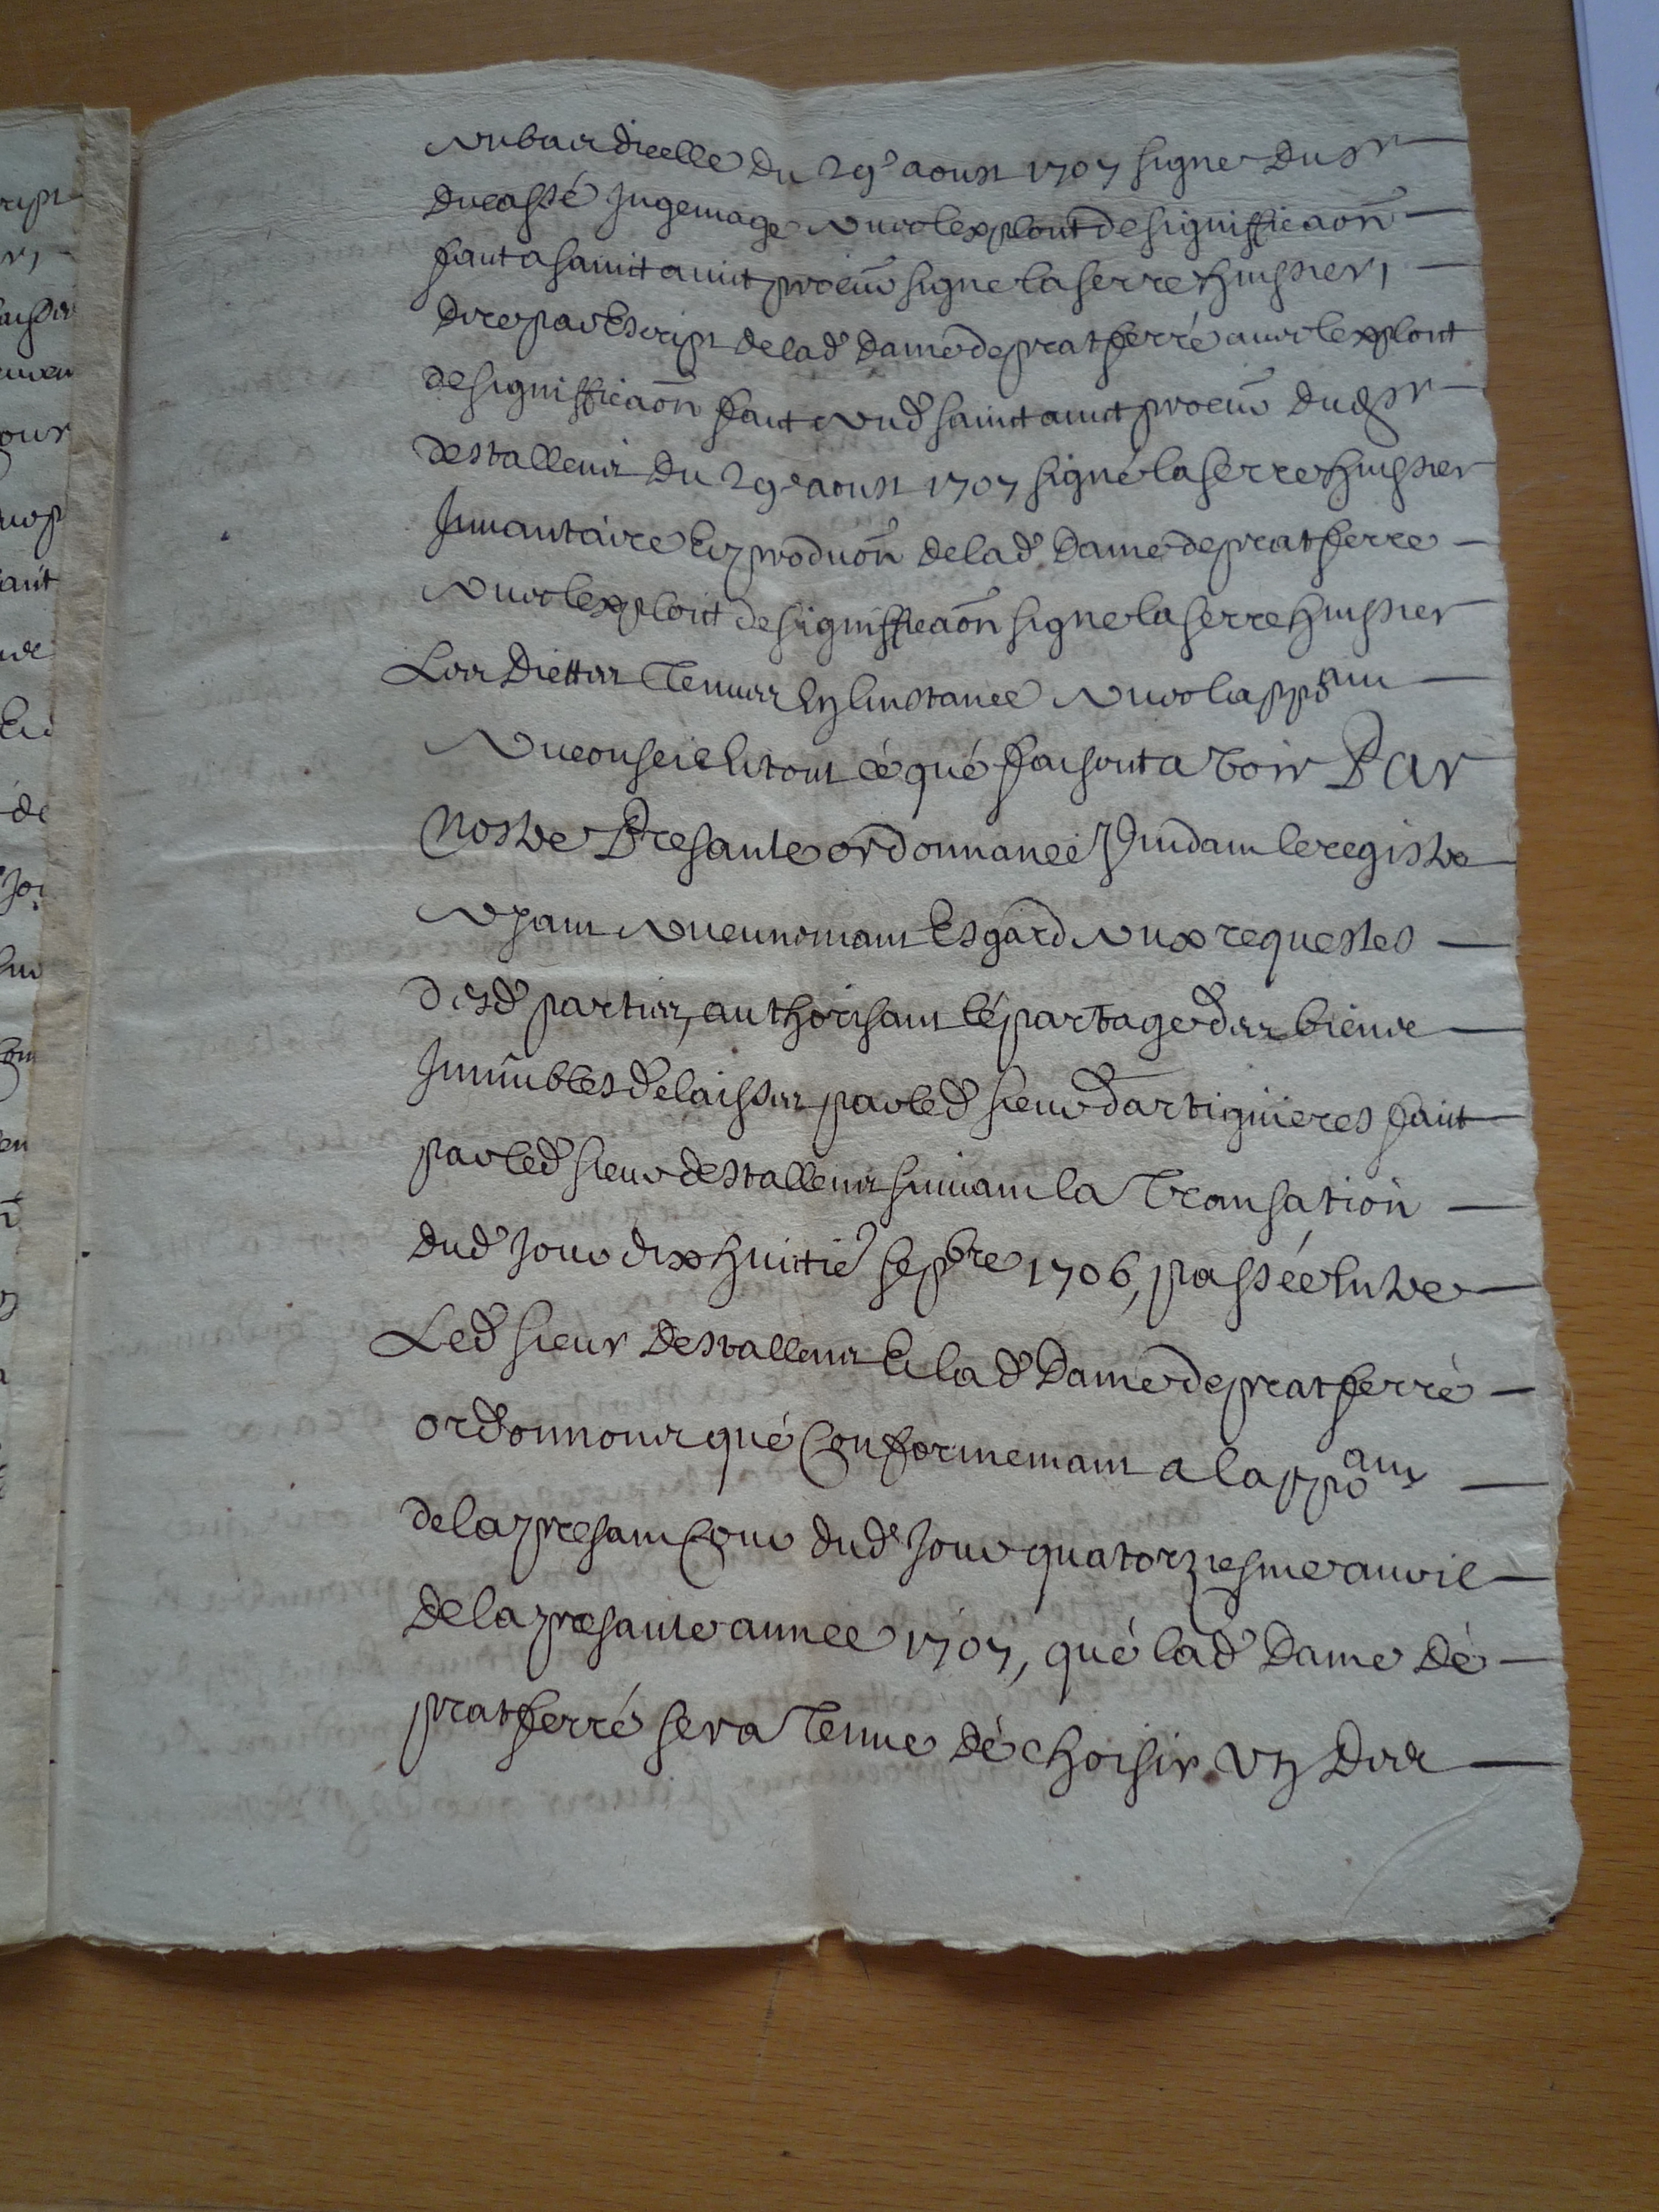 au bas dicelle du 29e aoust 1707 signe du sr
ducassé Jugemage avec lexploit de signifficaon
fait a saint amit procur signe laserre huissier,
dire par Escript de lad dame de pratferré avec lexploit
de signifficaon fait aud saint amit procur dud sr
destallens du 29e aoust 1707 signé laserre huissier
Inuantaire En produon de lad dame de pratferre
avec lexploit de signifficaon signe laserre huissier
Les dicttes Tenues En linstance avec lappoant
au conseil Et tout cé qué faisoit a voir Par
Nostre Presante ordonnance vuidant le registre
ayant aucunemant Esgard aux requestes
desd parties, authorisant lé partage des biens
Immubles delaisses par led sieur dartiguieres fait
par led sieur destallens suivant la Transation
dud Jour dix huictie sepbre 1706, passée Entre
Led sieur destallens Et lad dame de pratferré
ordonnons qué Conformemant a lappoant
de la presant Cour dud Jour quatorziesme auril
de la presante année 1707, qué lad dame dé
pratferré sera Tenue dé choisir un des